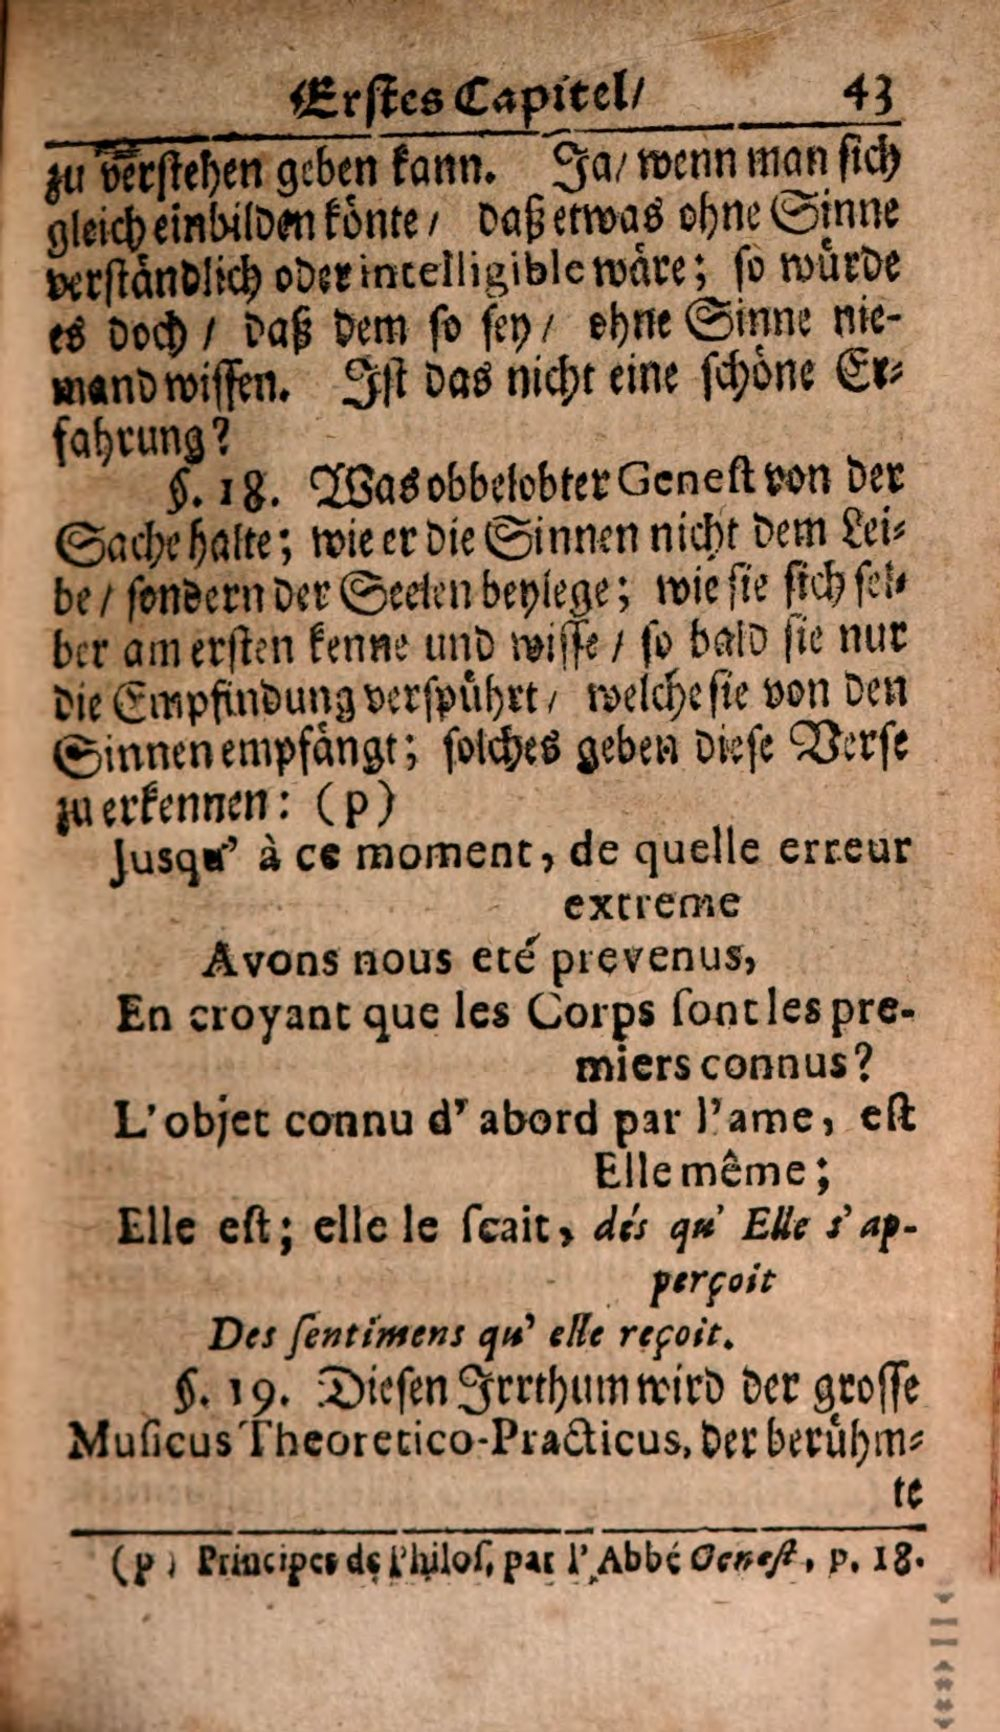 Erstes Capitel/ 43
zu verstehen geben kann. Ja/ wenn man sich
gleich einbilden könte/ daß etwas ohne Sinne
verständlich oder intelligible wäre; so würde
es doch/ daß dem so sey/ ohne Sinne nie-
mand wissen. Ist das nicht eine schöne Er-
fahrung?
§. 18. Was obbelobter Genest von der
Sache halte; wie er die Sinnen nicht dem Lei-
be/ sondern der Seelen beylege; wie sie sich sel-
ber am ersten kenne und wisse/ so bald sie nur
die Empfindung verspührt/ welche sie von den
Sinnen empfängt; solches geben diese Verse
zu erkennen: (p)
Jusqu' à ce moment, de quelle erreur
extreme
Avons nous eté prevenus,
En croyant que les Corps ſont les pre-
miers connus?
L'objet connu d'abord par l'ame, eſt
Elle même;
Elle eſt; elle le ſcait, dés qu' Elle s'ap-
perçoit
Des ſentimens qu' elle reçoit.
§. 19. Diesen Irrthum wird der grosse
Muſicus Theoretico-Practicus, der berühm-
te
(p) Principes de Philoſ. par l'Abbé Geneſt, p. 18.